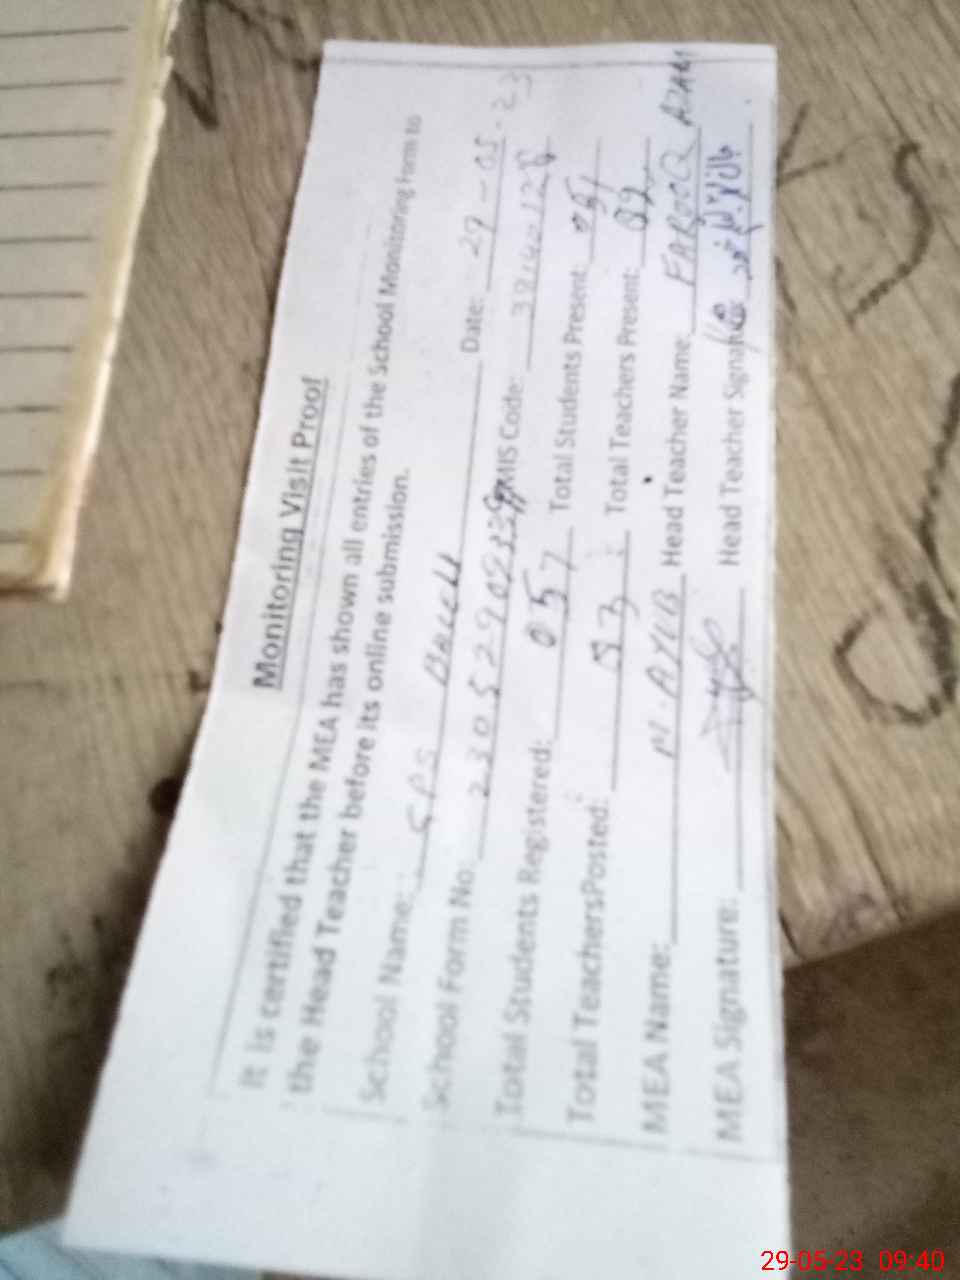 Monitoring Visit Proof
It is certified that the MEA has shown all entries of the School Monitoring Form to
the Head Teacher before its online submission.
School Name: GPS Date: 29-05-23
School Form No: EMIS Code:
Total Students Registered: 057 Total Students Present: 051
Total TeachersPosted: 03 Total Teachers Present:
MEA Name: M. AYUB Head Teacher Name: FAROOQ AZAM
MEA Signature: Head Teacher Signature:
29-05-23 09:40